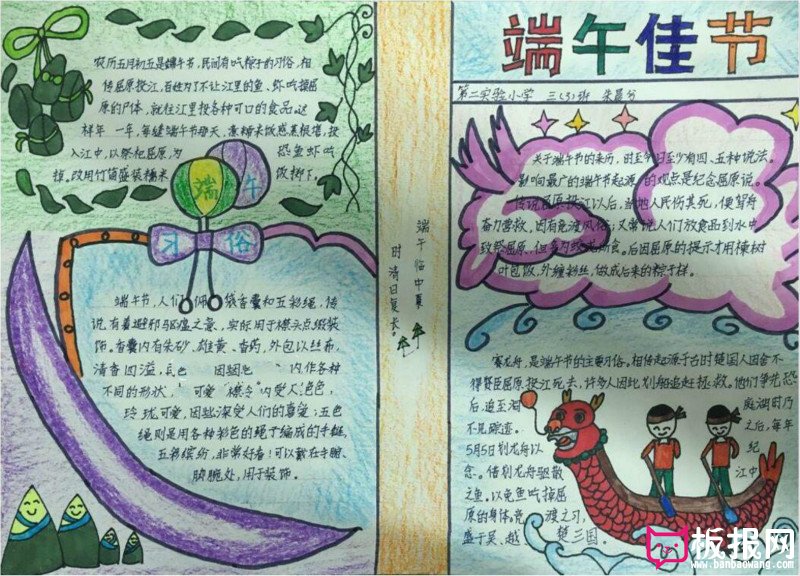 农历五月初五是端午节，民间有吃粽子的习俗，相
传屈原投江，百姓为了不让江里的鱼、虾吃掉屈
原的尸体，就往江里投各种可口的食品。这
样年一年，每缝端午节那天，
入江中，以祭祀屈原，为 恐鱼虾吃
掉，改用竹筒盛装糯米 做掷下。
端午
习俗
端午节，人们 佩 袋香囊和五彩绳，传
说有着避邪驱瘟之意，实际用于襟头点缀装
饰。香囊内有朱砂、雄黄、香药，外包以丝布，
清香四溢， 内作各种
不同的形状，
玲珑可爱，因此深受人们的喜爱；五色
绳则是用各种彩色的绳子编成的手链，
五彩缤纷，非常好看！可以戴在手腕、
脚腕处，用于装饰。
端午临中夏
时清日复长。
端午佳节
第二实验小学 三(5)班 朱晨兮
关于端午节的来历，时至今日至少有四、五种说法。
影响最广的端午节起源的观点是纪念屈原说。
传说屈原投江以后，当地人民伤其死，便驾舟
奋力营救，因有竞渡风俗；又常说人们放食品到水中
致祭屈原，但多为蛟龙所食。后因屈原的提示才用楝树
叶包饭，外缠彩丝，做成后来的粽子样。
赛龙舟，是端午节的主要习俗。相传起源于古时楚国人因舍不
得贤臣屈原投江死去，许多人划船追赶拯救。他们争先恐
后，追至洞 庭湖时乃
不见踪迹。 之后，每年
5月5日划龙舟以 纪
念。借划龙舟驱散 江中
之鱼，以免鱼吃掉屈
原的身体。竞 渡之习，
盛于吴、越、 楚三国。
板报网
www.banbaowang.com